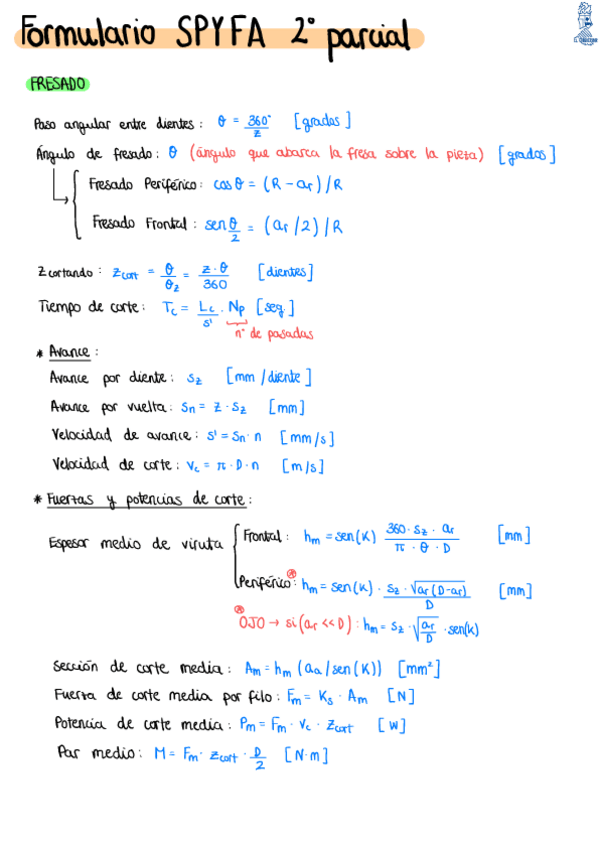 Formulario SPYFA 2° parcial
FRESADO
Paso angular entre dientes: θ = 360°/z [grados]
Ángulo de fresado: θ (ángulo que abarca la fresa sobre la pieza) [grados]
Fresado Periférico: cos θ = (R - ar) / R
Fresado Frontal: sen θ/2 = (ar / 2) / R
Z cortando: Zcort = θ/θz = z · θ/360 [dientes]
Tiempo de corte: Tc = Lc/s' · Np [seg.]
n° de pasadas
* Avance:
Avance por diente: sz [mm / diente]
Avance por vuelta: sn = z · sz [mm]
Velocidad de avance: s' = sn · n [mm/s]
Velocidad de corte: vc = π · D · n [m/s]
* Fuerzas y potencias de corte:
Espesor medio de viruta
Frontal: hm = sen(K) 360 · sz · ar / π · θ · D [mm]
Periférico:* hm = sen(K) · sz · √ar(D-ar) / D [mm]
* OJO → si (ar << D): hm = sz · √ar/D · sen(K)
Sección de corte media: Am = hm (aa / sen(K)) [mm²]
Fuerza de corte media por filo: Fm = Ks · Am [N]
Potencia de corte media: Pm = Fm · vc · Zcort [W]
Par medio: M = Fm · Zcort · D/2 [N·m]